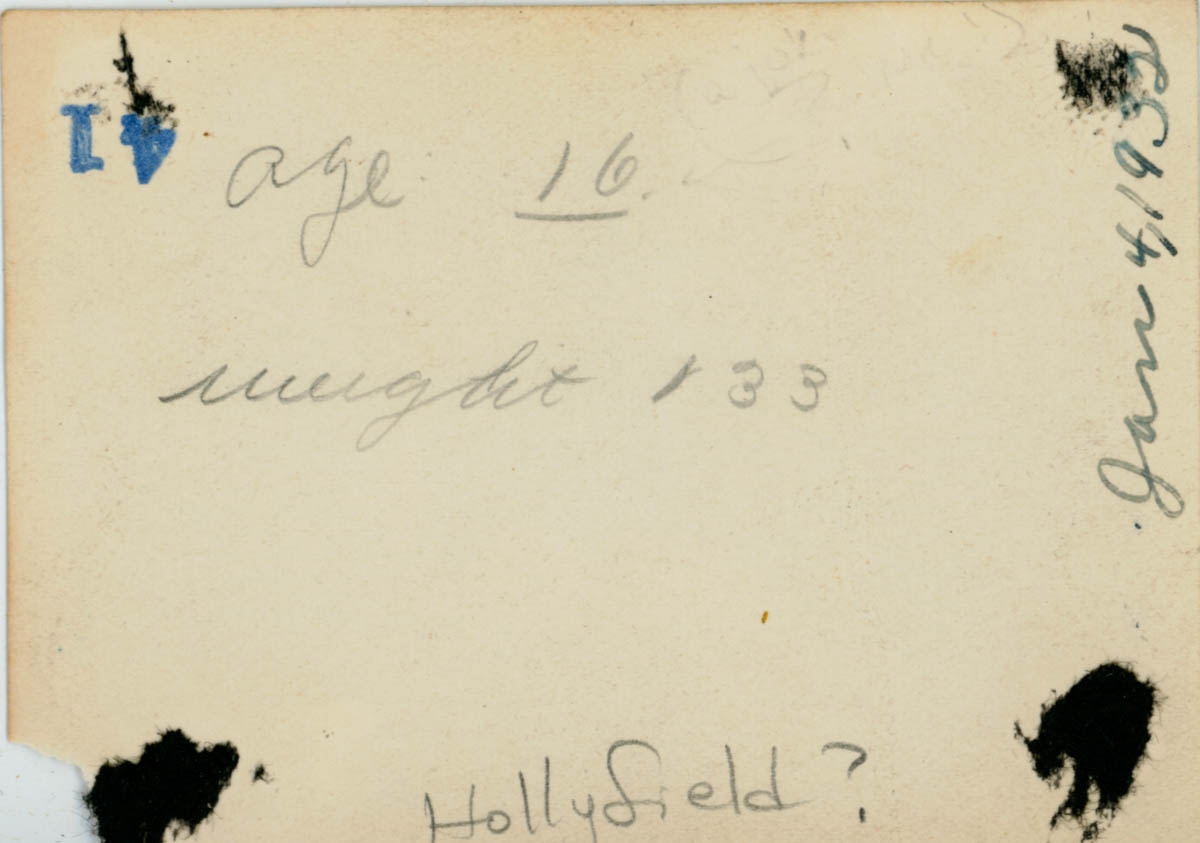 41
age 16.
weight 133
Jan 4, 1932
Hollyfield ?